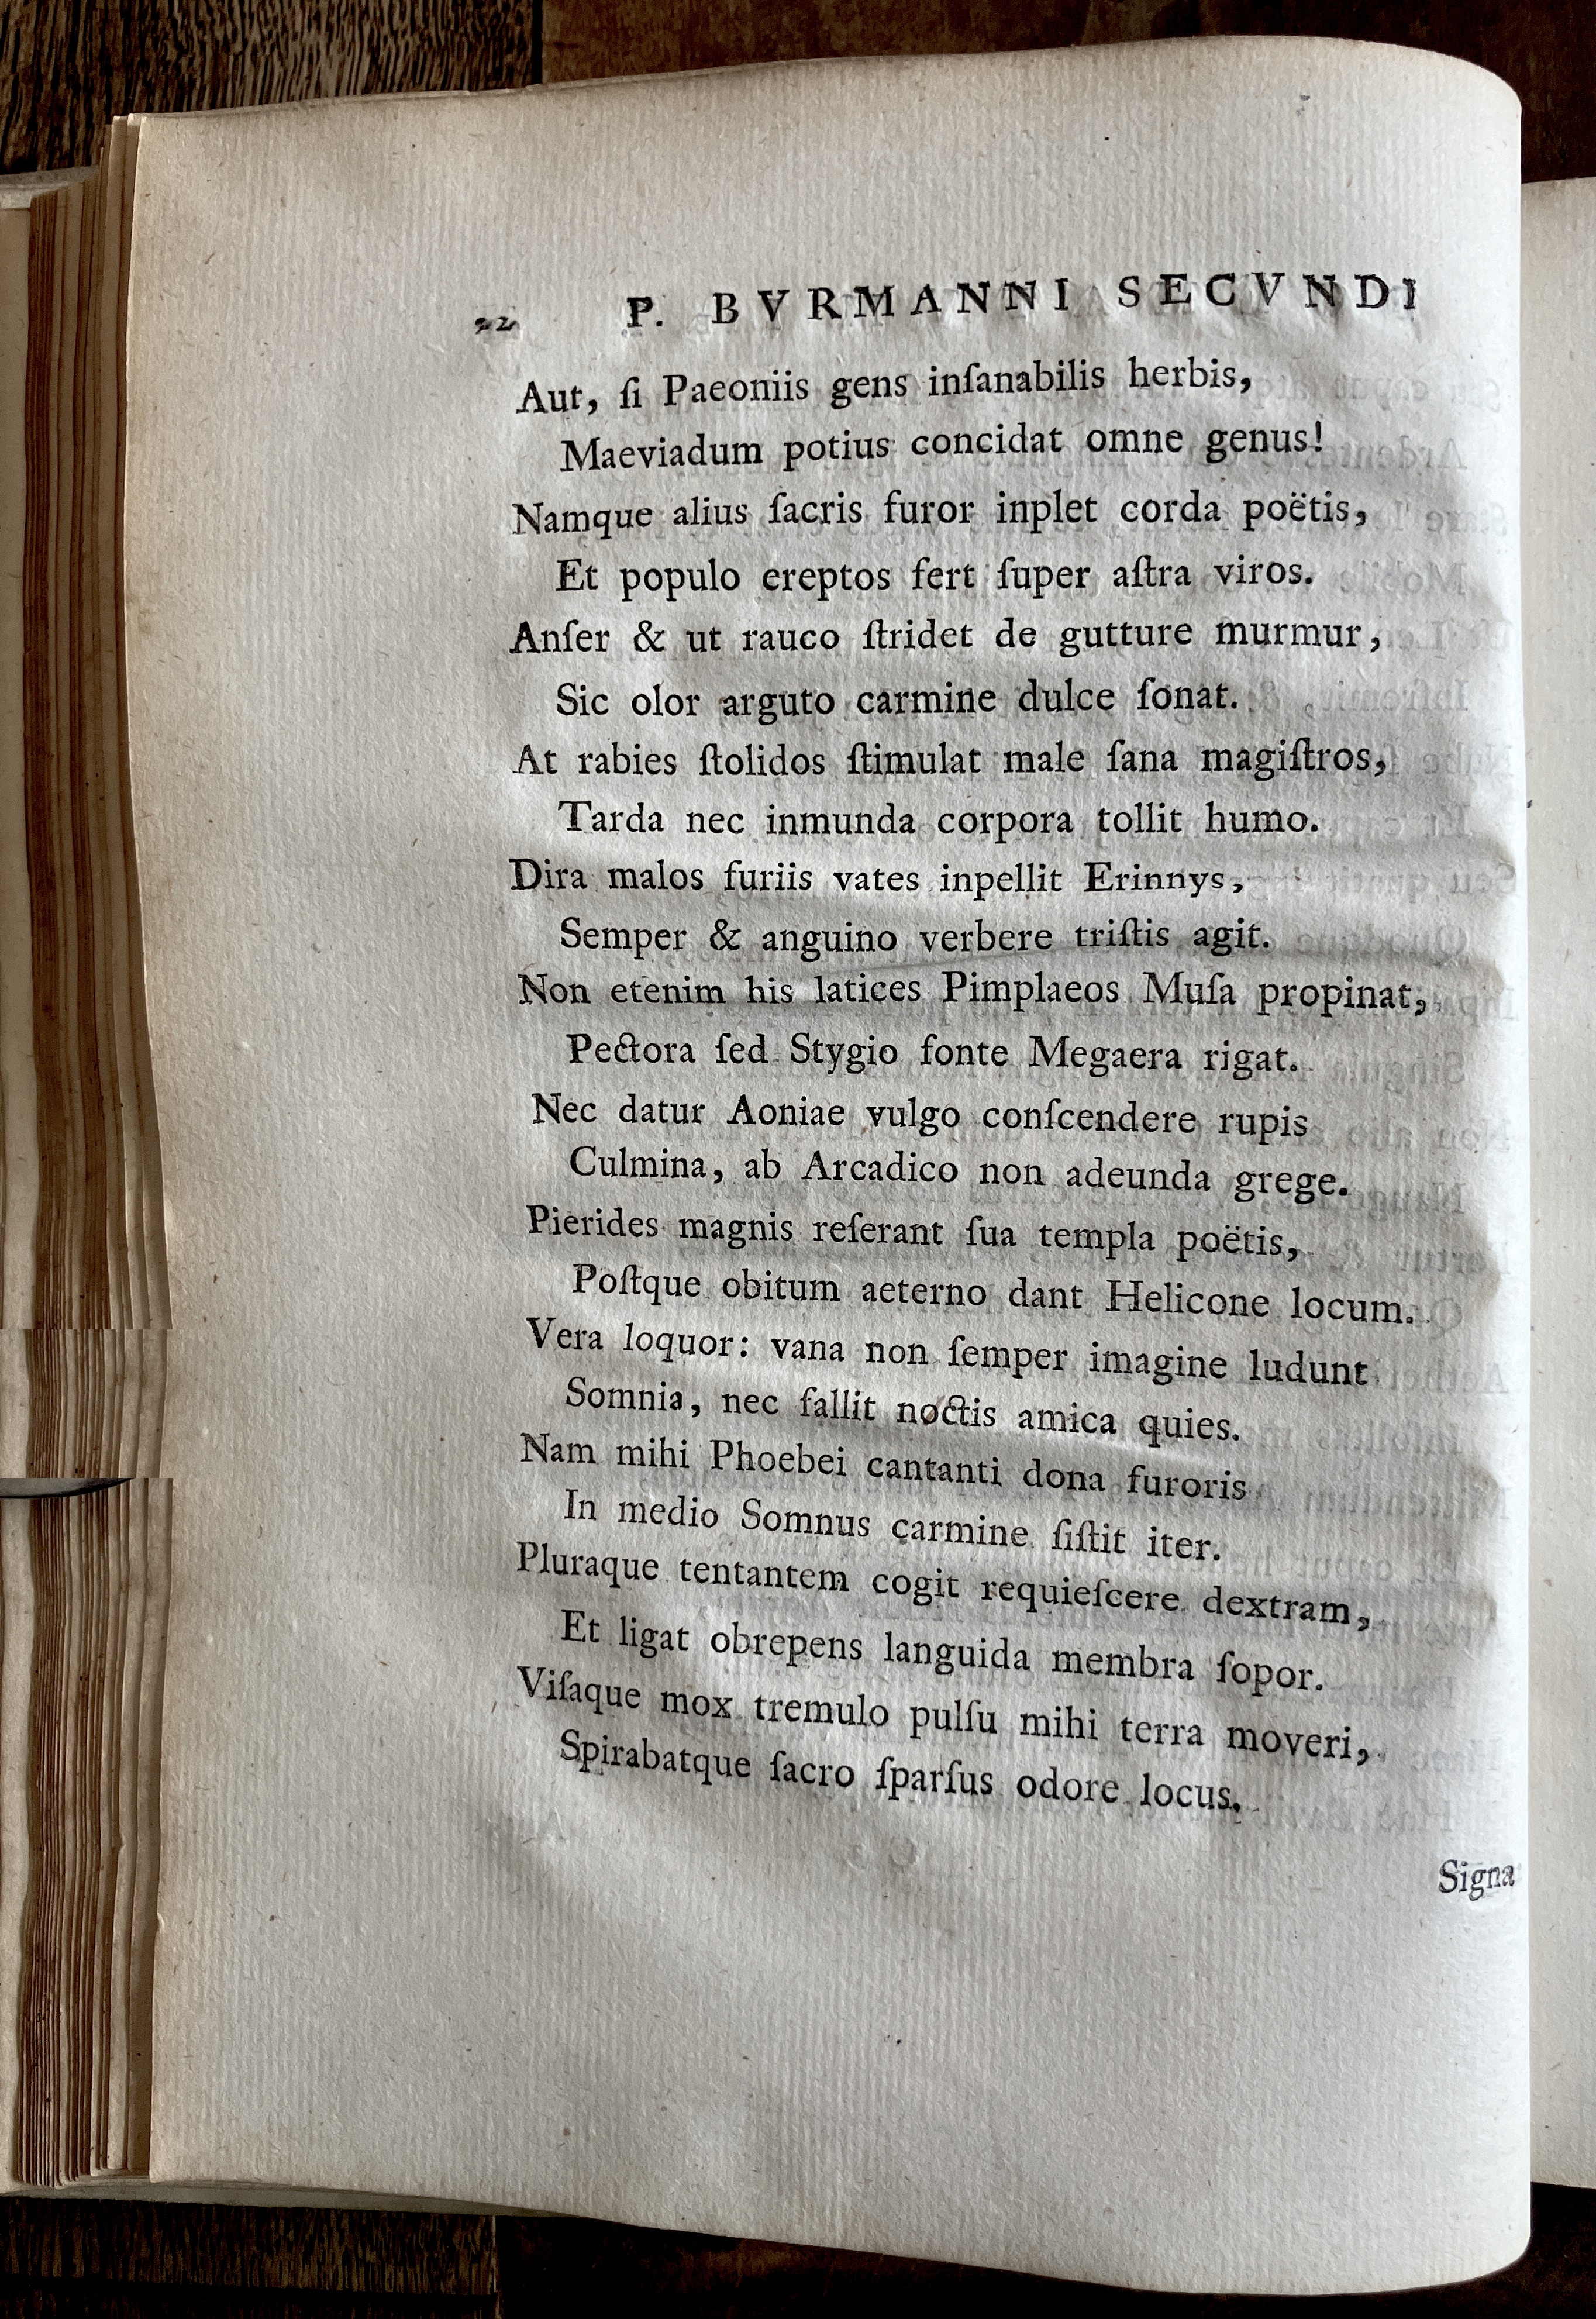 22 P. BVRMANNI SECVNDI
Aut, ſi Paeoniis gens inſanabilis herbis,
Maeviadum potius concidat omne genus!
Namque alius ſacris furor inplet corda poëtis,
Et populo ereptos fert ſuper aſtra viros.
Anſer & ut rauco ſtridet de gutture murmur,
Sic olor arguto carmine dulce ſonat.
At rabies ſtolidos ſtimulat male ſana magiſtros,
Tarda nec inmunda corpora tollit humo.
Dira malos furiis vates inpellit Erinnys,
Semper & anguino verbere triſtis agit.
Non etenim his latices Pimplaeos Muſa propinat,
Pectora ſed Stygio fonte Megaera rigat.
Nec datur Aoniae vulgo conſcendere rupis
Culmina, ab Arcadico non adeunda grege.
Pierides magnis reſerant ſua templa poëtis,
Poſtque obitum aeterno dant Helicone locum.
Vera loquor: vana non ſemper imagine ludunt
Somnia, nec fallit noctis amica quies.
Nam mihi Phoebei cantanti dona furoris
In medio Somnus carmine ſiſtit iter.
Pluraque tentantem cogit requieſcere dextram,
Et ligat obrepens languida membra ſopor.
Viſaque mox tremulo pulſu mihi terra moveri,
Spirabatque ſacro ſparſus odore locus.
Signa